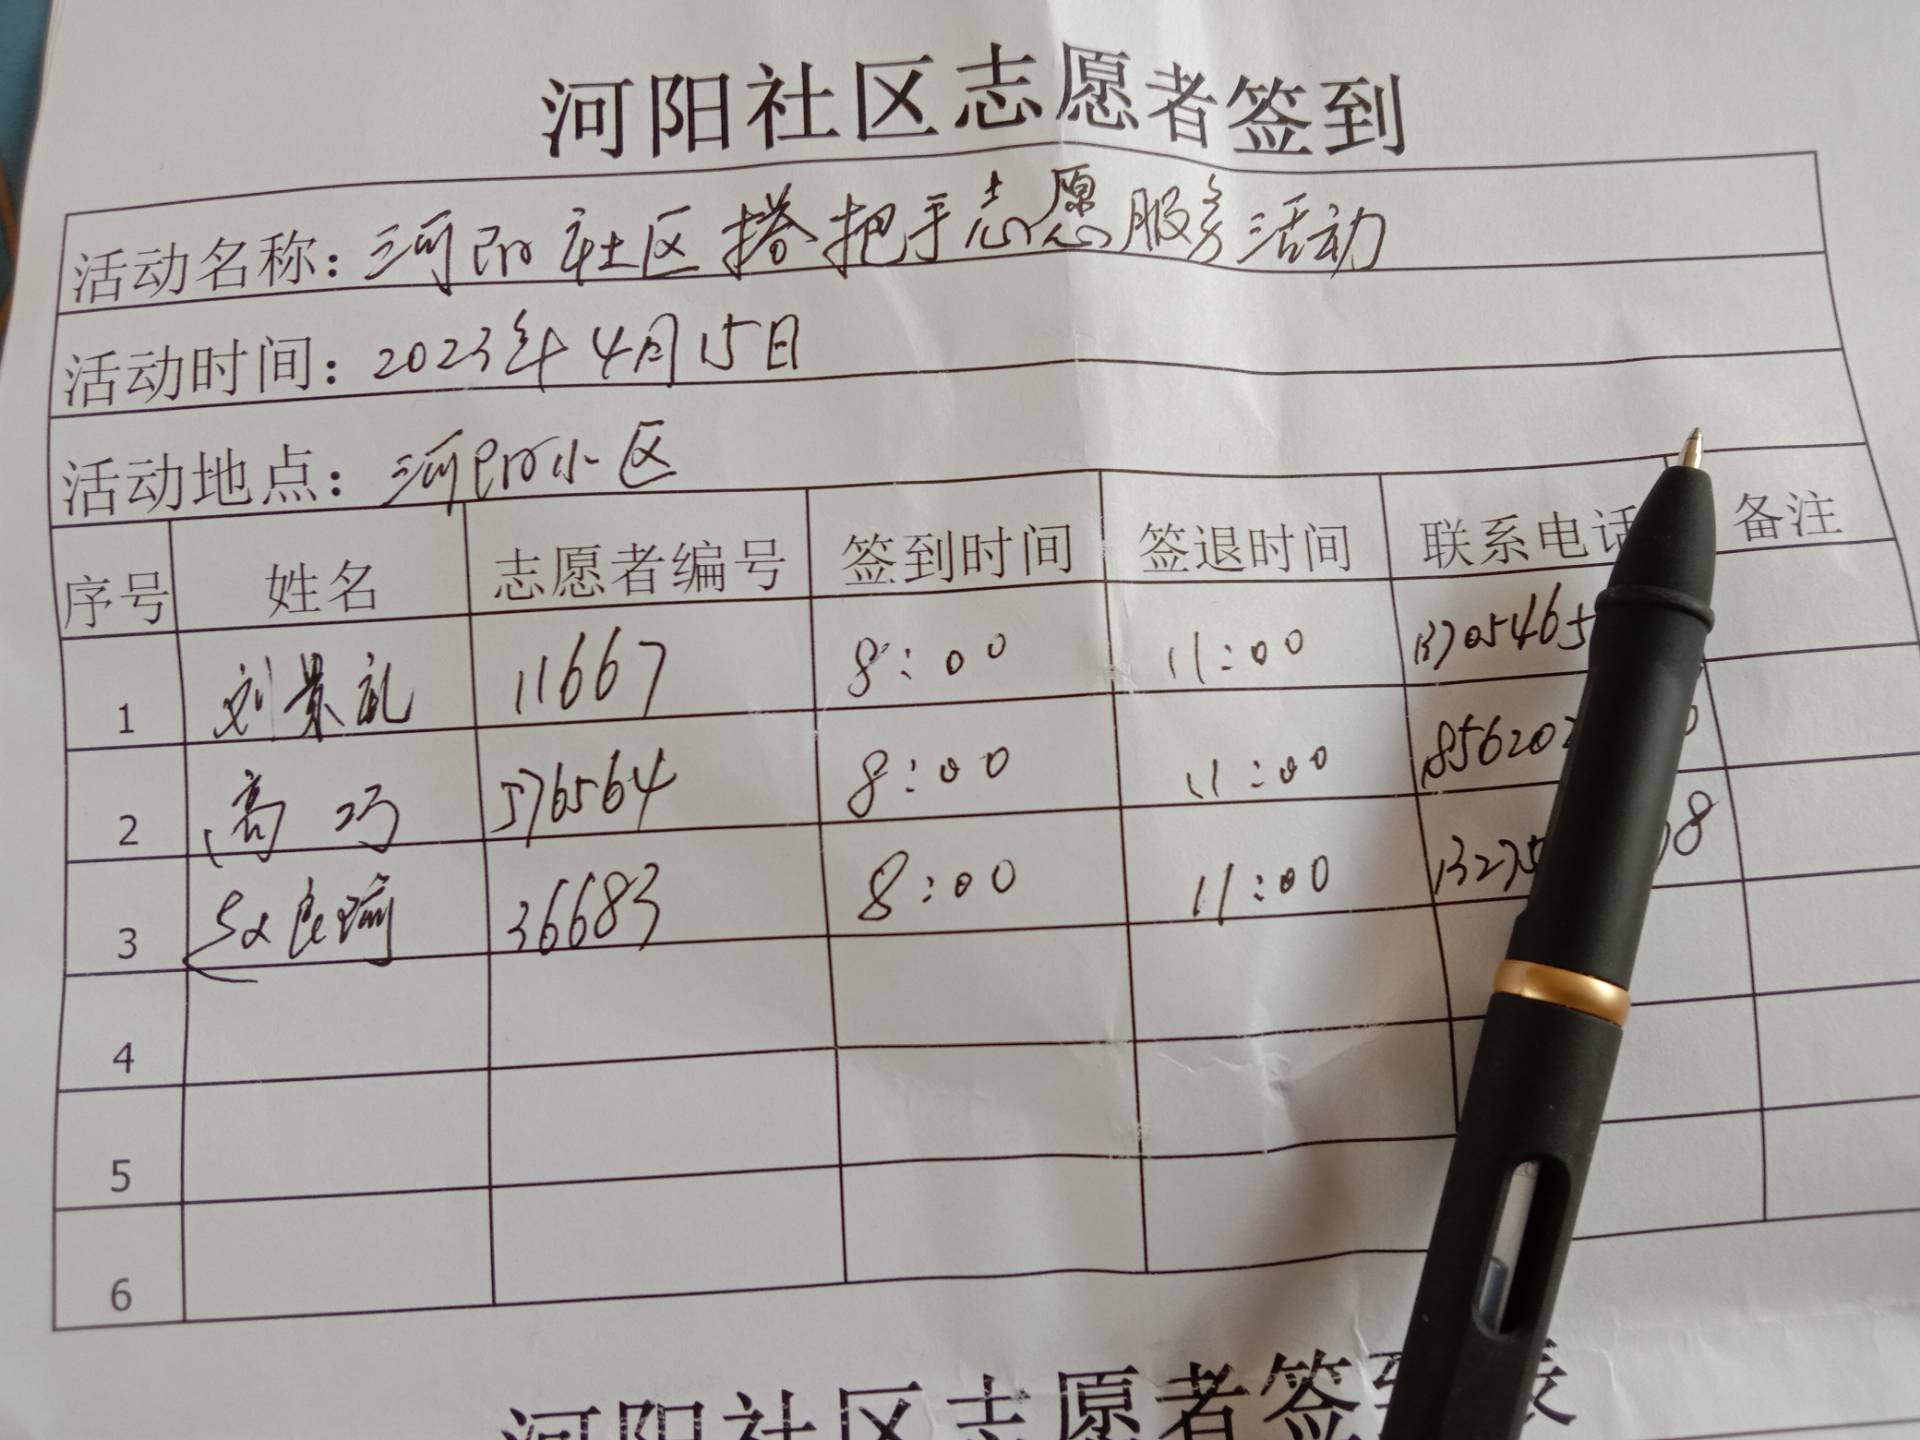 河阳社区志愿者签到
活动名称：河阳社区搭把手志愿服务活动
活动时间：2023年4月15日
活动地点：河阳小区
序号 姓名 志愿者编号 签到时间 签退时间 联系电话 备注
1 刘景礼 11667 8:00 11:00 13705465
2 高巧 576564 8:00 11:00 1856202
3 36683 8:00 11:00 13275 8
4
5
6
河阳社区志愿者签到表